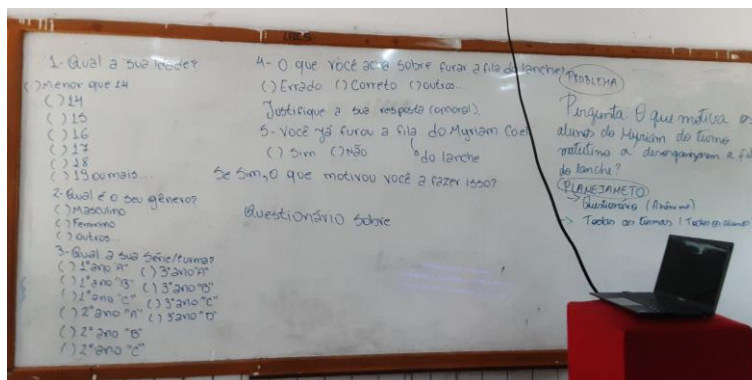 1- Qual a sua idade?
( ) Menor que 14
( ) 14
( ) 15
( ) 16
( ) 17
( ) 18
( ) 19 ou mais...
2- Qual é o seu gênero?
( ) Masculino
( ) Feminino
( ) outros...
3- Qual a sua série/turma?
( ) 1º ano "A" ( ) 3º ano "A"
( ) 1º ano "B" ( ) 3º ano "B"
( ) 1º ano "C" ( ) 3º ano "C"
( ) 2º ano "A" ( ) 3º ano "D"
( ) 2º ano "B"
( ) 2º ano "C"
4- O que você acha sobre furar a fila do lanche?
( ) Errado ( ) Correto ( ) outros...
Justifique a sua resposta (opcional).
5- Você já furou a fila do Myriam Coel
do lanche
( ) Sim ( ) Não
Se sim, o que motivou você a fazer isso?
Questionário sobre
PROBLEMA
Pergunta: O que motiva os
alunos do Myriam do turno
matutino a desorganizarem a fila
do lanche?
PLANEJAMETO
→ Questionário (Anônimo)
→ Todas as turmas / Todos os alunos